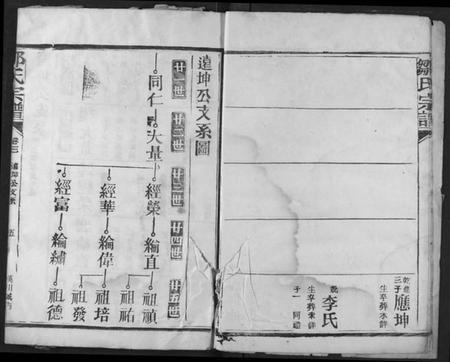 鄒氏宗譜
乾
三子 應坤
生卒葬未詳
配 李氏
生卒葬未詳
子一
遠坤公支系圖
廿一世
廿二世
廿三世
廿四世
廿五世
同仁
大量
經榮
經華
經富
綸直
綸偉
綸繡
祖禎
祖祐
祖培
祖發
祖德
鄒氏宗譜
卷三
遠坤公支系
五